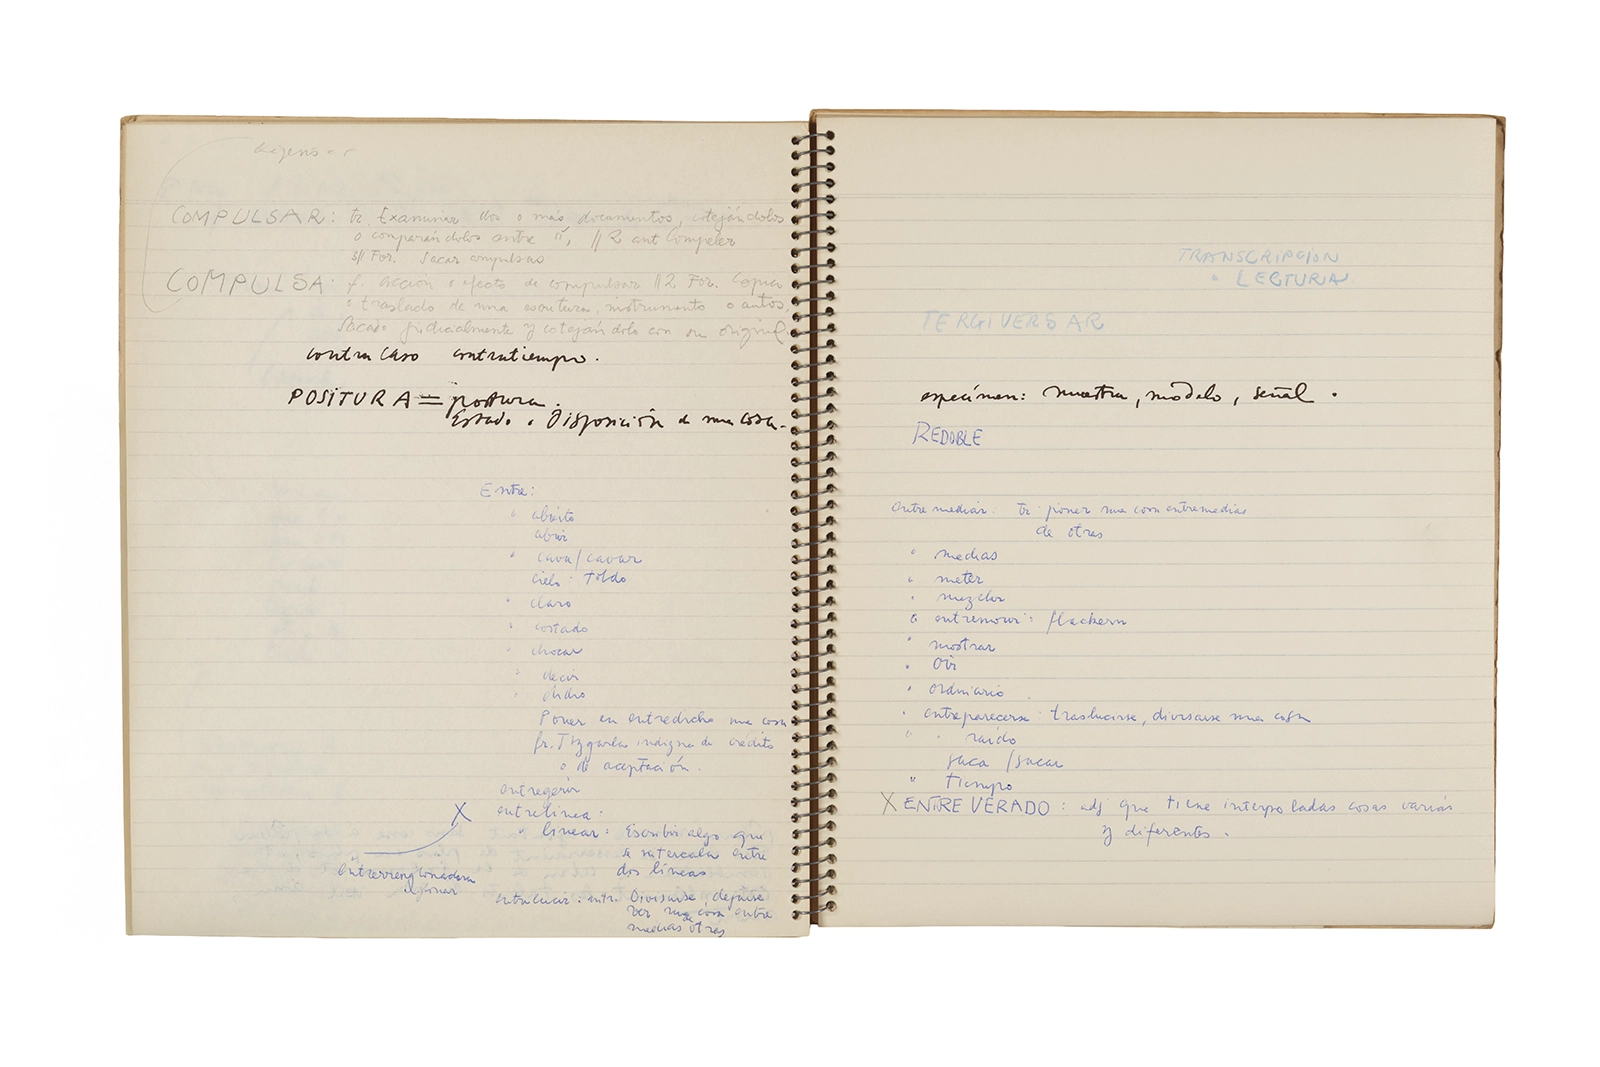 COMPULSAR: tr. Examinar dos o más documentos, cotejándolos
o comparándolos entre sí, // 2 ant Compeler
3// For. Sacar compulsas
COMPULSA: f. acción o efecto de compulsar //2 For. Copia
o traslado de una escritura, instrumento o autos,
sacado judicialmente y cotejándolo con su original.
contra caso contratiempo.
POSITURA = postura.
Estado o Disposición de una cosa.
Entre:
" abierto
abrir
" cava/cavar
cielo: Toldo
" claro
" cortado
" chocar
" decir
" dicho
Poner en entredicho una cosa
fr. Juzgarla indigna de crédito
o de aceptación.
entregerir
X entrelínea:
" linear: Escribir algo que
se intercala entre
dos líneas
entrerrenglonadura
entrelucir: intr. Divisarse, dejarse
ver una cosa entre
medias de otras
TRANSCRIPCION
" LECTURA
TERGIVERSAR
especímen: muestra, modelo, señal.
REDOBLE
entremediar: tr. poner una cosa entremedias
de otras
" medias
" meter
" mezclar
" entremorir: flackern
" mostrar
" oir
" ordinario
" entreparecerse: traslucirse, divisarse una cosa
" " raído
saca / sacar
" tiempo
X ENTREVERADO: adj que tiene interpoladas cosas varias
y diferentes.